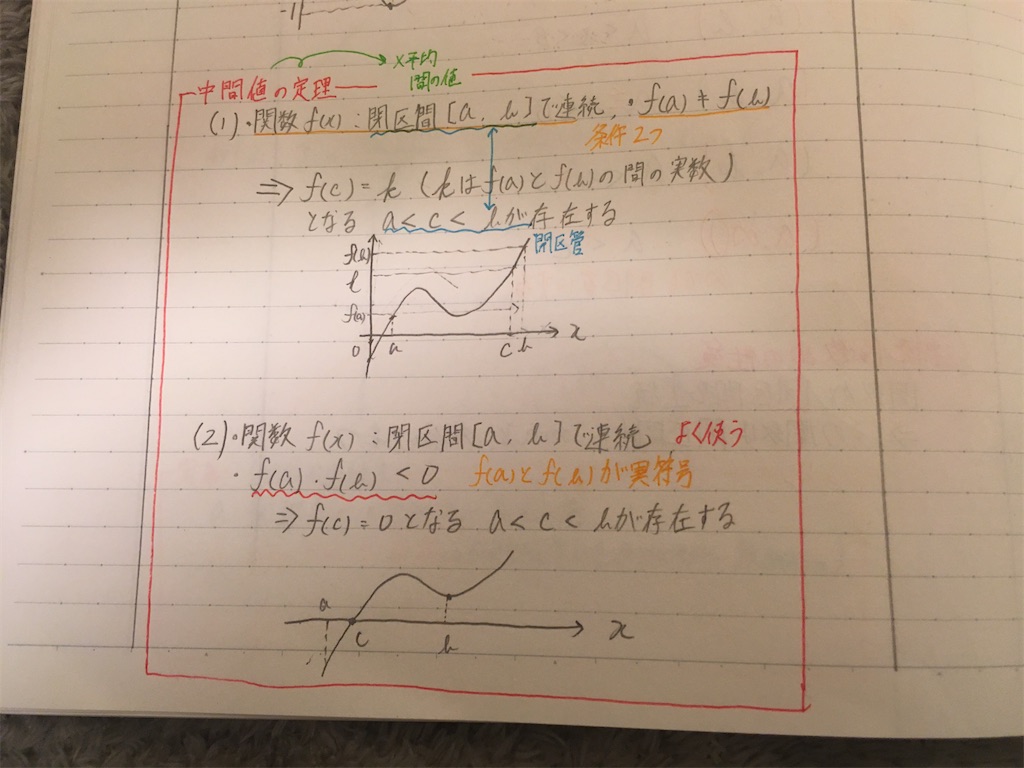 -1
×平均
間の値
中間値の定理
(1)・関数 f(x) : 閉区間 [a, b] で連続, ・f(a) ≠ f(b)
条件2つ
⇒ f(c) = k (kはf(a)とf(b)の間の実数)
となる a < c < bが存在する
閉区管
f(b)
k
f(a)
0 a c b x
(2)・関数 f(x) : 閉区間 [a, b] で連続 よく使う
・f(a)・f(b) < 0 f(a)とf(b)が異符号
⇒ f(c) = 0となる a < c < bが存在する
a
c b x